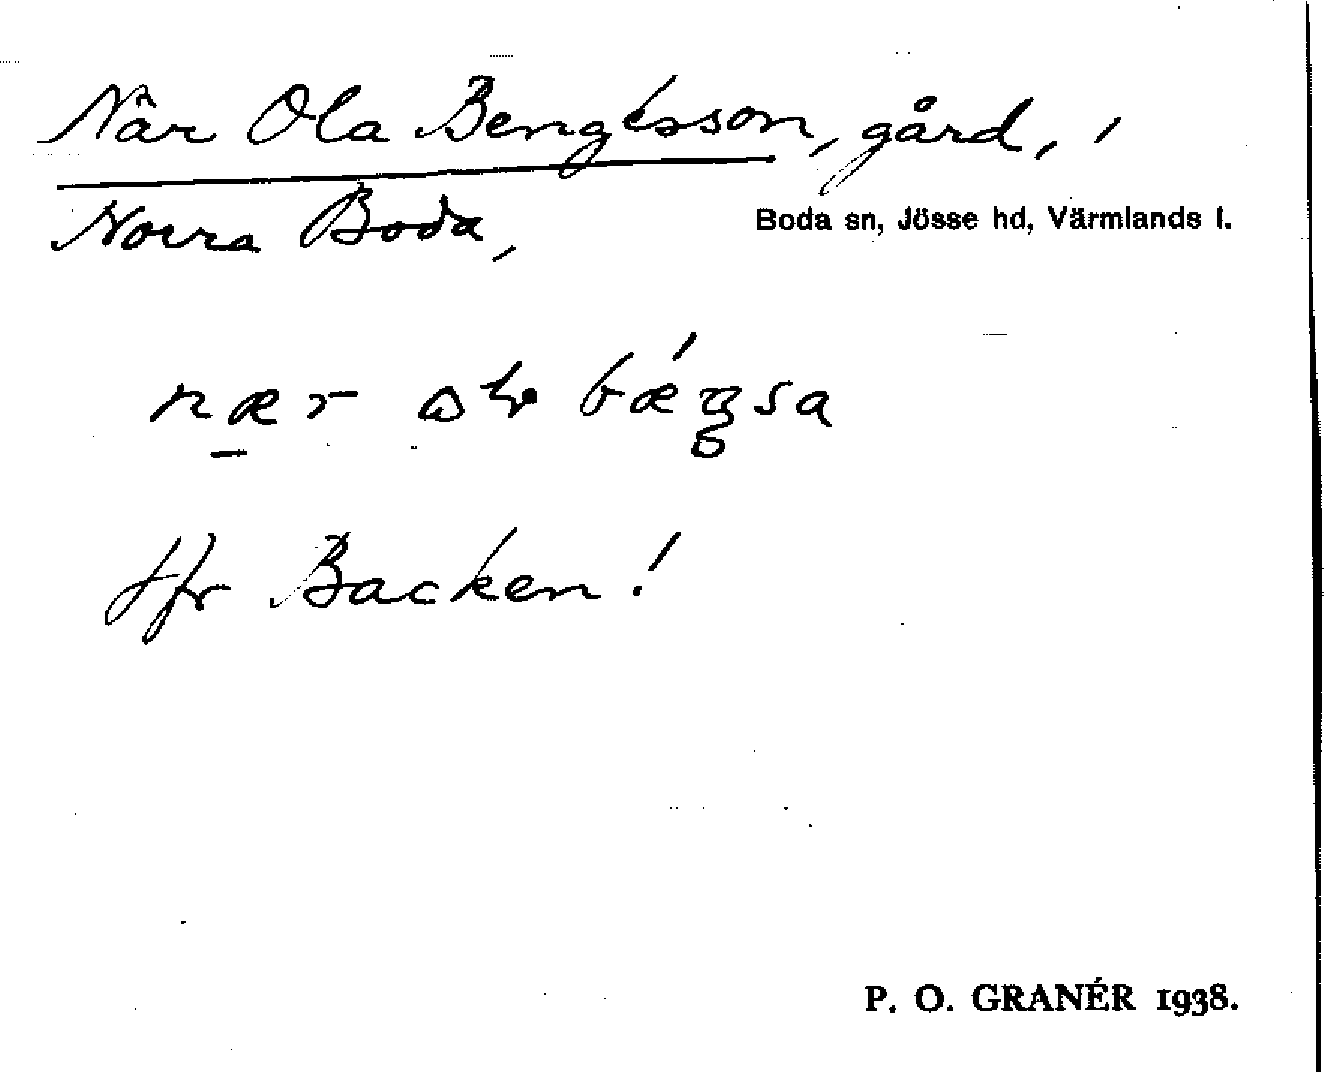 När Ola Bengtsson, gård, i
Norra Boda,
Boda sn, Jösse hd, Värmlands l.
nær
Jfr Backen!
P. O. GRANÉR 1938.